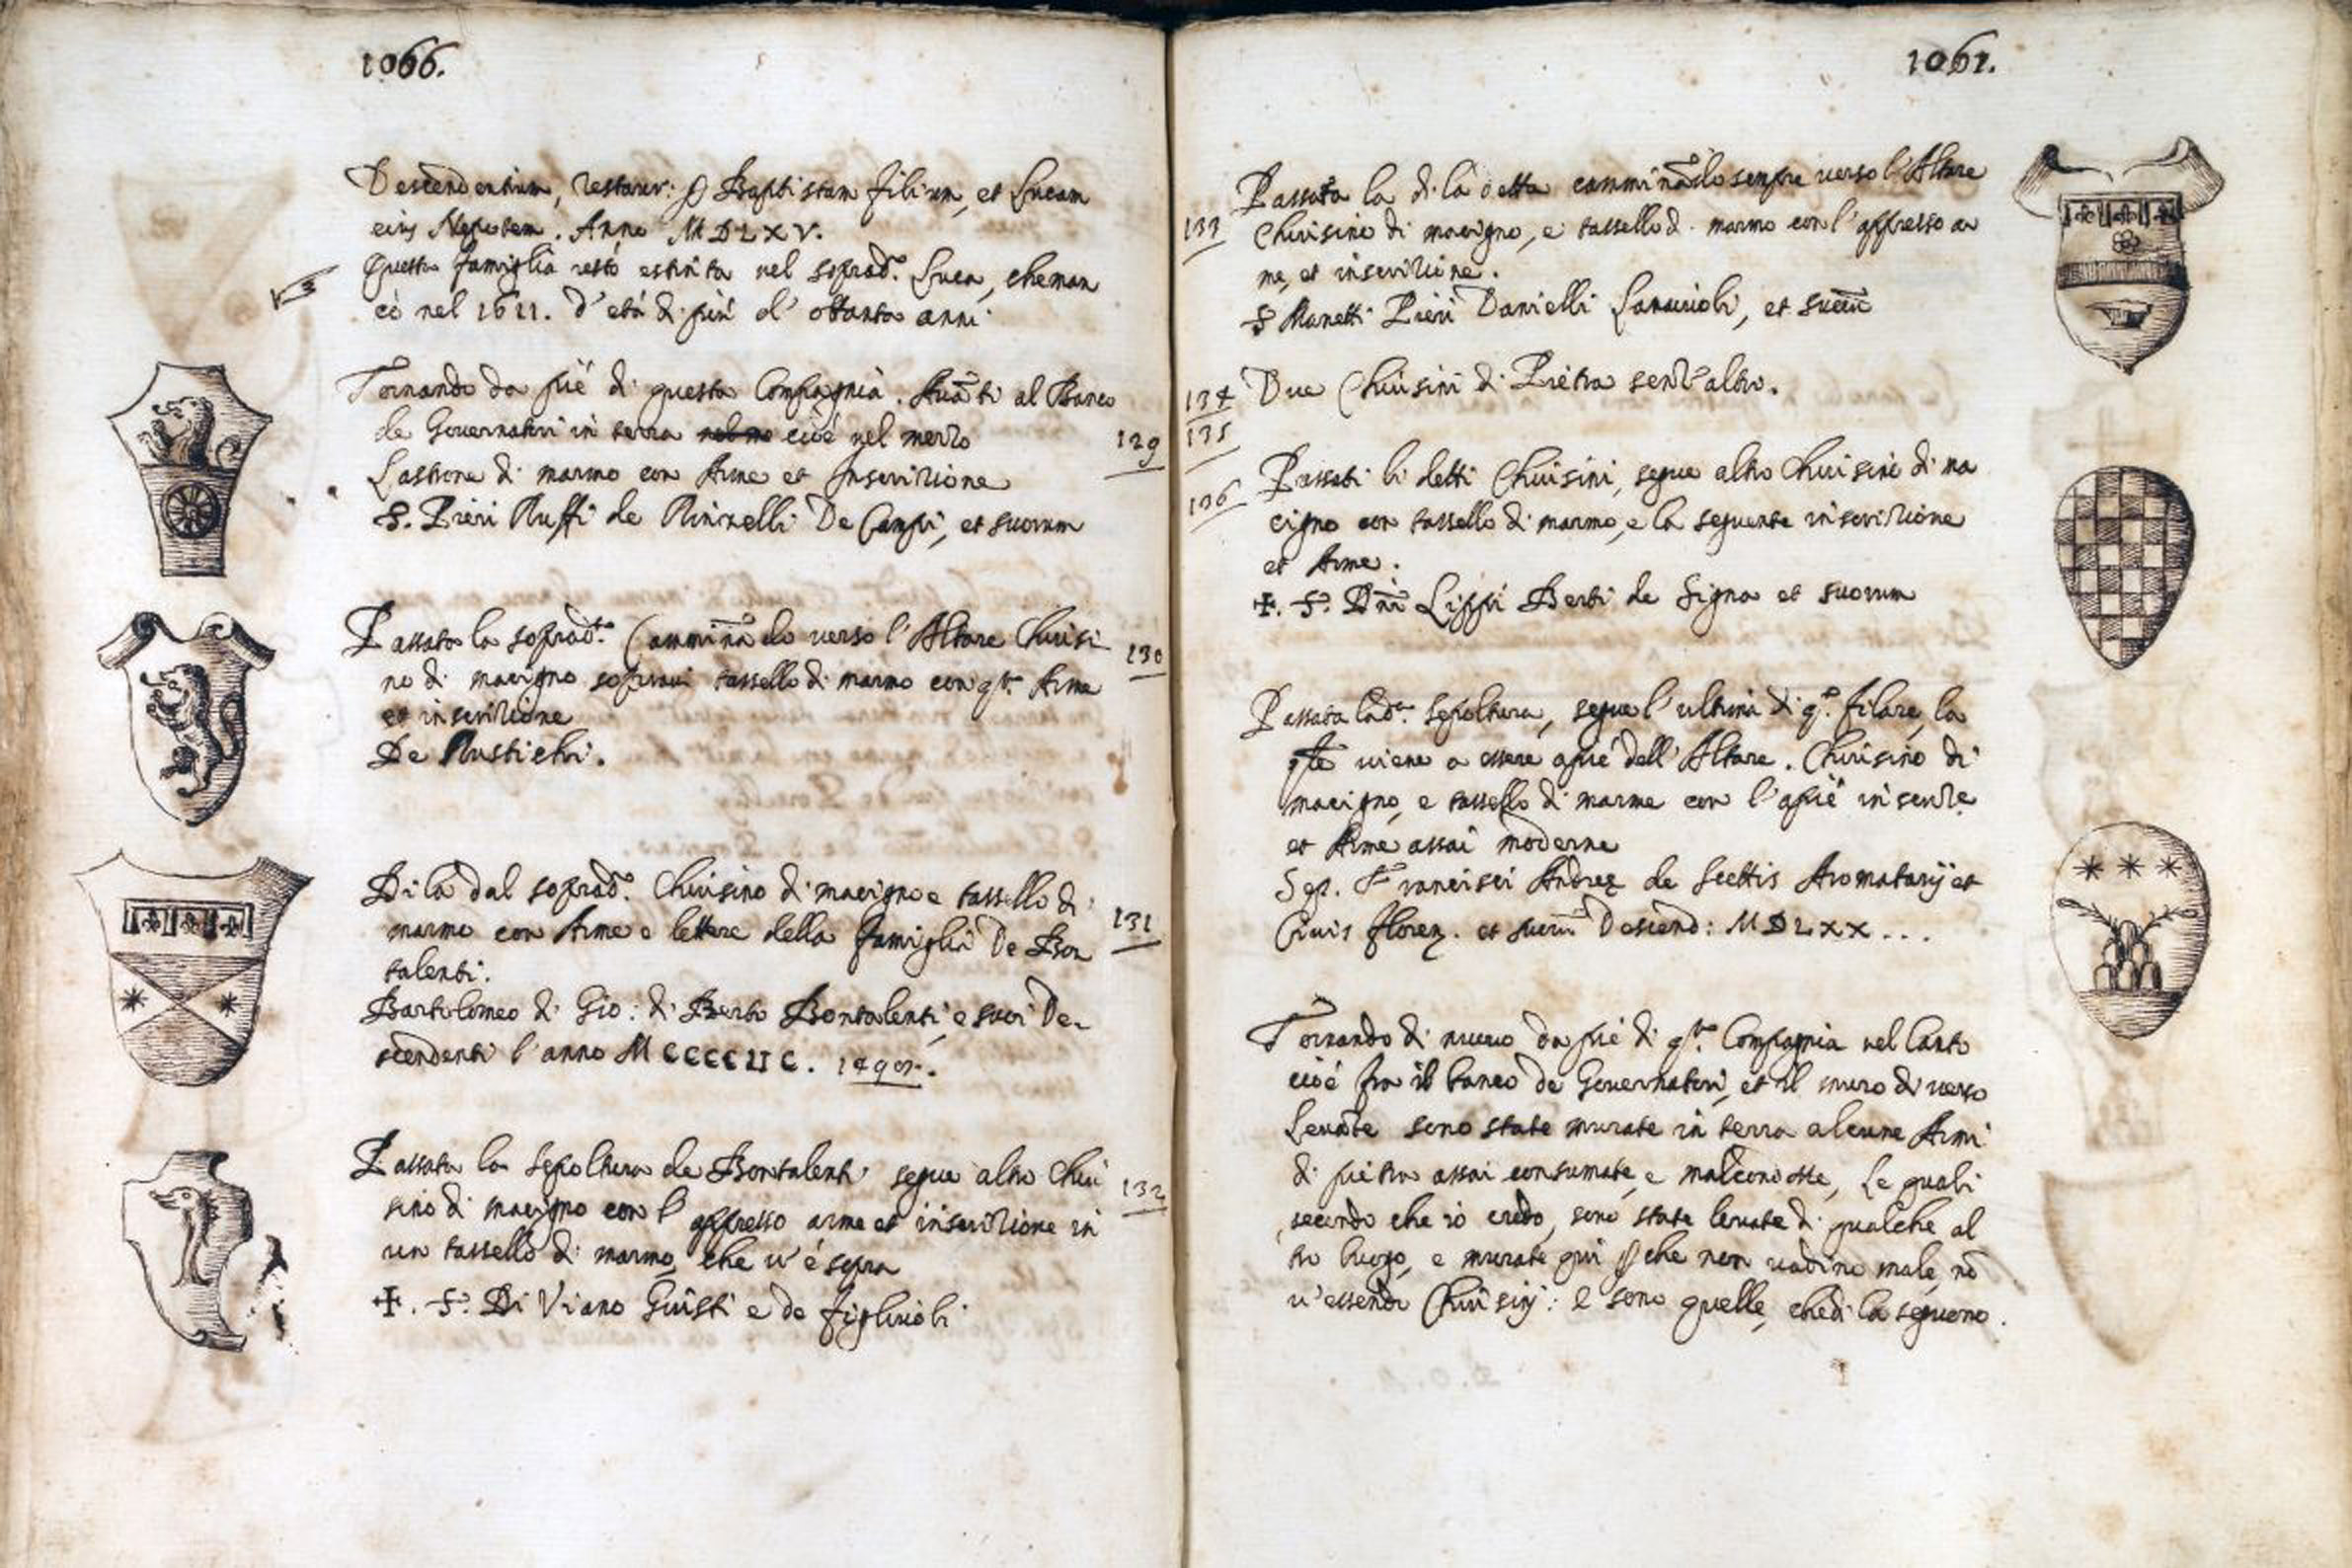 1066.
Descendentium, restaur: Baptistam filium, et Lucam
eius Nepotem. Anno MDLXV.
Questa famiglia restò estinta nel soprad.º Luca, che man
cò nel 1611. d'età di più d'ottanta anni
Tornando da piè di questa Compagnia. Auãti al Banco
de Governatori in terra cioè nel mezzo
129
Lastrone di marmo con Arme et Inscrizione
S. Pieri Ruffi de Rinzelli De Campi, et suorum
Passato la soprad.ta Camminãdo verso l'Altare Chiusi
130
no di macigno sopravi tassello di marmo con q.ta Arme
et inscrizione
De Rustichi.
Di là dal soprad.º Chiusino di macigno e tassello di
marmo con Arme e lettere della famiglia De Bon
131
talenti.
Bartolomeo di Gio: di Berto Bontalenti, e suoi De-
scendenti l'anno MCCCC
Passata la sepoltura de Bontalenti segue altro Chiu
132
sino di macigno con l'appresso arme et inscrizione in
un tassello di marmo, che v'è sopra
✠. S. Di Viano Giusti e de figliuoli
1061.
Passata la di là detta camminãdo sempre verso l'Altare
133
Chiusino di macigno, e tassello di marmo con l'appresso ar
me, et inscrizione.
S Manetti Pieri Danielli Lanaiuoli, et
134
Due Chiusini di Pietra senz'altro.
135
136
Passati li detti Chiusini, segue altro Chiusino di ma
cigno con tassello di marmo, e la seguente inscrizione
et Arme.
✠. S. Dñi Lippi Berti de Signa et suorum
Passata la d.ª sepoltura, segue l'ultima di q.º filare, la
viene a essere a piè dell'Altare. Chiusino di
macigno, e tassello di marmo con l'a piè inscriz.e
et Arme assai moderne
Sep. Francisci Andreę de Scettis Aromatarij et
Civis floren. et Descend: MDLXX...
Tornando di nuovo da piè di q.ta Compagnia nel Canto
cioè fra il banco de Governatori, et il muro di verso
Levãte sono state murate in terra alcune Armi
di pietra assai consumate, e mal conosse, Le quali
secondo che io credo, sono state levate di qualche al
tro luogo, e murate qui che non vadino male, nõ
v'essendo Chiusinj: e sono quelle, che di la seguono.